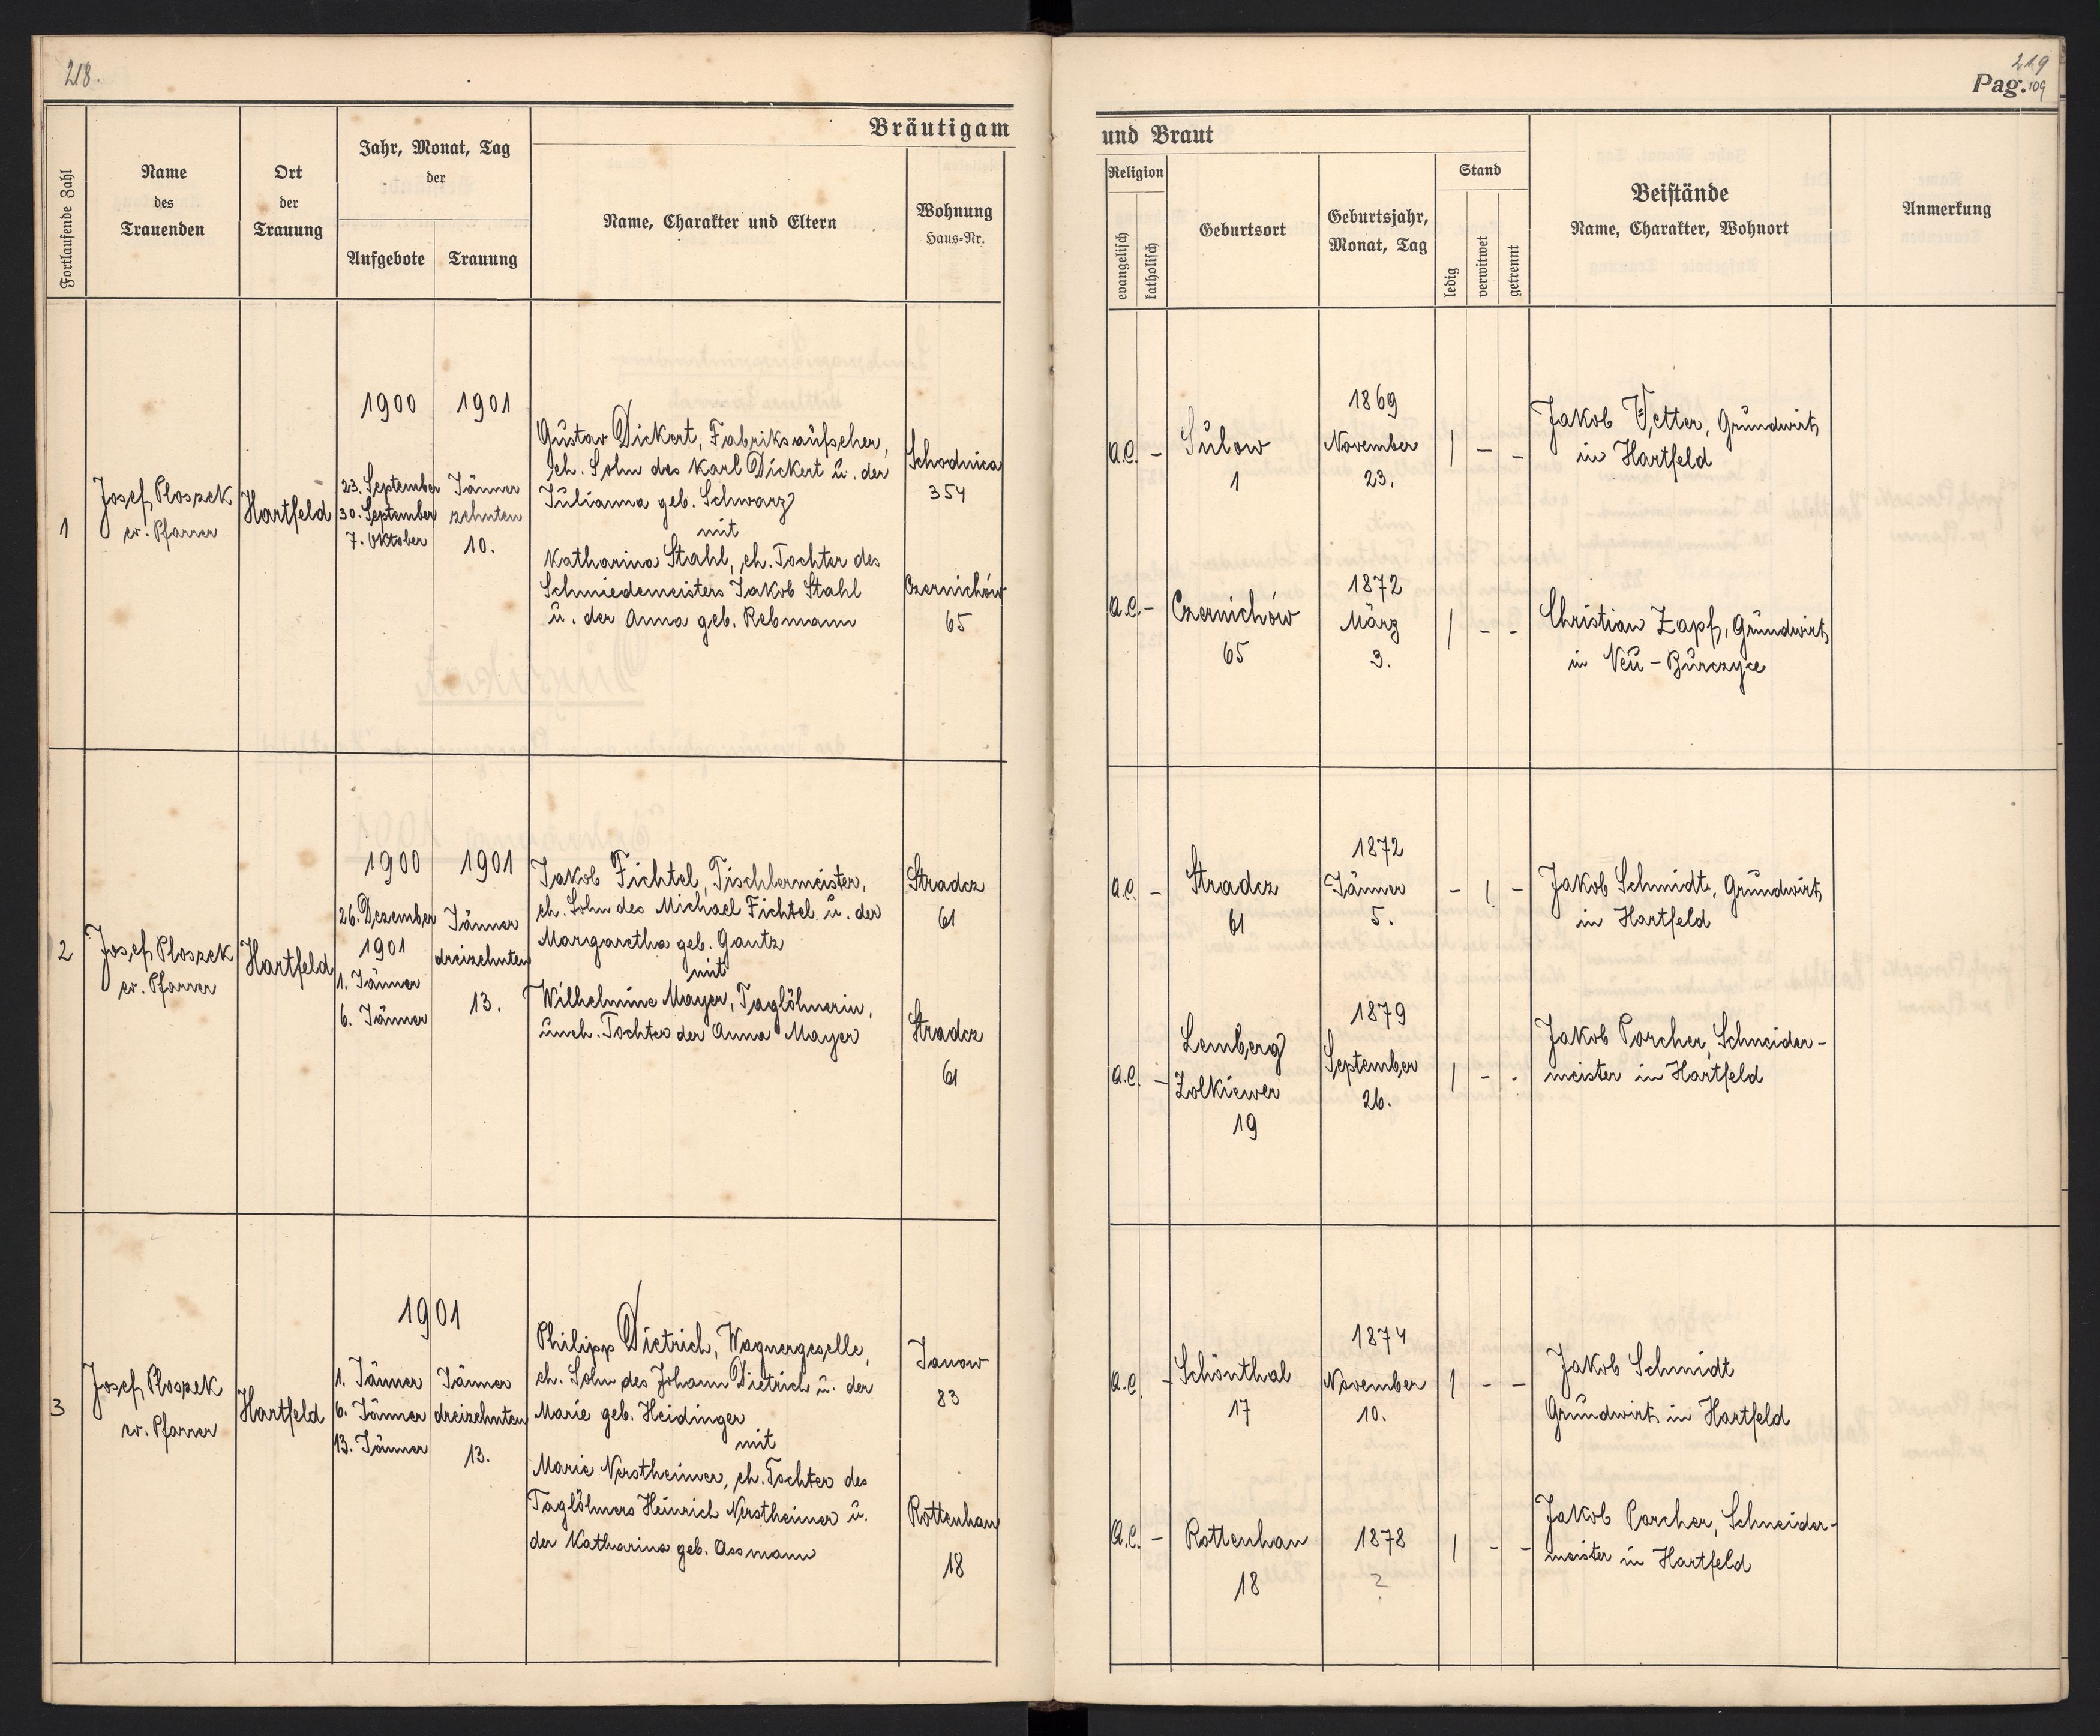 218.
219
Pag. 109
Bräutigam
und Braut
Fortlaufende Zahl
Name
des
Trauenden
Ort
der
Trauung
Jahr, Monat, Tag
der
Aufgebote
Trauung
Name, Charakter und Eltern
Wohnung
Haus-Nr.
Religion
evangelisch
katholisch
Geburtsort
Geburtsjahr,
Monat, Tag
Stand
ledig
verwitwet
getrennt
Beistände
Name, Charakter, Wohnort
Anmerkung
1
Josef Ploszek
ev. Pfarrer
Hartfeld
1900
23. September
30. September
7. Oktober
1901
Jänner
zehnten
10.
Gustav Dickert, Fabriksaufseher,
eh. Sohn des Karl Dickert u. der
Julianna geb. Schwarz
mit
Katharina Stahl, eh. Tochter des
Schmiedemeisters Jakob Stahl
u. der Anna geb. Rebmann
Schodnica
354
Czernichów
65
a.C. -
Sulow
1
1869
November
23.
| - -
Jakob Vetter, Grundwirt
in Hartfeld
a.C. -
Czernichów
65
1872
März
3.
| - -
Christian Zapf, Grundwirt
in Neu-Burczyce
2
Josef Ploszek
ev. Pfarrer
Hartfeld
1900
26. Dezember
1901
1. Jänner
6. Jänner
1901
Jänner
dreizehnten
13.
Jakob Fichtel, Tischlermeister,
eh. Sohn des Michael Fichtel u. der
Margaretha geb. Gantz
mit
Wilhelmine Mayer, Taglöhnerin,
uneh. Tochter der Anna Mayer
Stradcz
61
Stradcz
61
a.C. -
Stradcz
61
1872
Jänner
5.
- | -
Jakob Schmidt, Grundwirt
in Hartfeld
a.C. -
Lemberg
Zolkiewer
19
1879
September
26.
| - -
Jakob Porcher, Schneider-
meister in Hartfeld
3
Josef Ploszek
ev. Pfarrer
Hartfeld
1901
1. Jänner
6. Jänner
13. Jänner
Jänner
dreizehnten
13.
Philipp Dietrich, Wagnergeselle,
eh. Sohn des Johann Dietrich u. der
Marie geb. Heidinger
mit
Marie Nerstheimer, eh. Tochter des
Taglöhners Heinrich Nerstheimer u.
der Katharina geb. Assmann
Janow
83
Rottenhan
18
a.C. -
Schönthal
17
1874
November
10.
| - -
Jakob Schmidt
Grundwirt in Hartfeld
a.C. -
Rottenhan
18
1878
?
| - -
Jakob Porcher, Schneider-
meister in Hartfeld